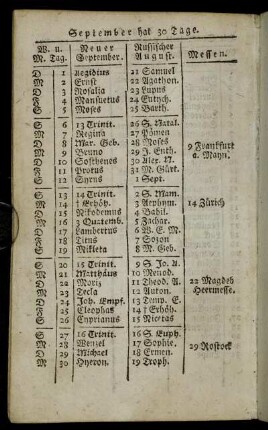 September hat 30 Tage.
W. u. Neuer Russischer Messen.
M. Tag. September. August.
D 1 Aegidius 21 Samuel
M 2 Ernst 22 Agathon.
D 3 Rosalia 23 Lupus
F 4 Mansuetus 24 Eutych.
S 5 Moses 25 Barth.
S 6 13 Trinit. 26 S. Natal.
M 7 Regina 27 Pömen
D 8 Mar. Geb. 28 Moses 9 Frankfurt
M 9 Bruno 29 J. Enth. a. Mayn.
D 10 Sosthenes 30 Alex. N.
F 11 Protus 31 M. Gürt.
S 12 Syrus 1 Sept.
S 13 14 Trinit. 2 S. Mam.
M 14 † Erhöh. 3 Anthym. 14 Zürich
D 15 Nikodemus 4 Babil.
M 16 Quatemb. 5 Zachar.
D 17 Lambertus 6 W. E. M.
F 18 Titus 7 Sozon
S 19 Mikleta 8 M. Geb.
S 20 15 Trinit. 9 S. Jo. A.
M 21 Matthäus 10 Menod.
D 22 Moriz 11 Theod. A. 22 Magdeb
M 23 Tecla 12 Auton. Heermesse.
D 24 Joh. Empf. 13 Temp. E.
F 25 Cleophas 14 † Erhöh.
S 26 Cyprianus 15 Nicetas
S 27 16 Trinit. 16 S. Euph.
M 28 Wenzel 17 Sophie.
D 29 Michael 18 Ermen. 29 Rostock
M 30 Hyeron. 19 Troph.